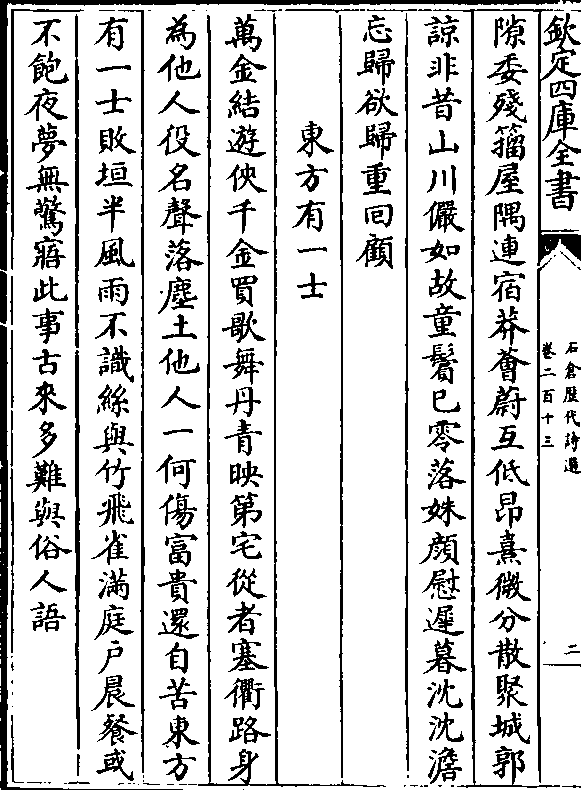 欽定四庫全書
石倉歷代詩選
卷二百十三
二
隙委殘籀屋隅連宿莽薈蔚互低昂熹微分散聚城郭
諒非昔山川儼如故童鬢已零落姝顔慰遲暮沈沈澹
忘歸欲歸重回顧
東方有一士
萬金結遊俠千金買歌舞丹青映第宅從者塞衢路身
為他人役名聲落塵土他人一何傷富貴還自苦東方
有一士敗垣半風雨不識絲與竹飛雀滿庭户晨餐或
不飽夜夢無驚寤此事古來多難與俗人語